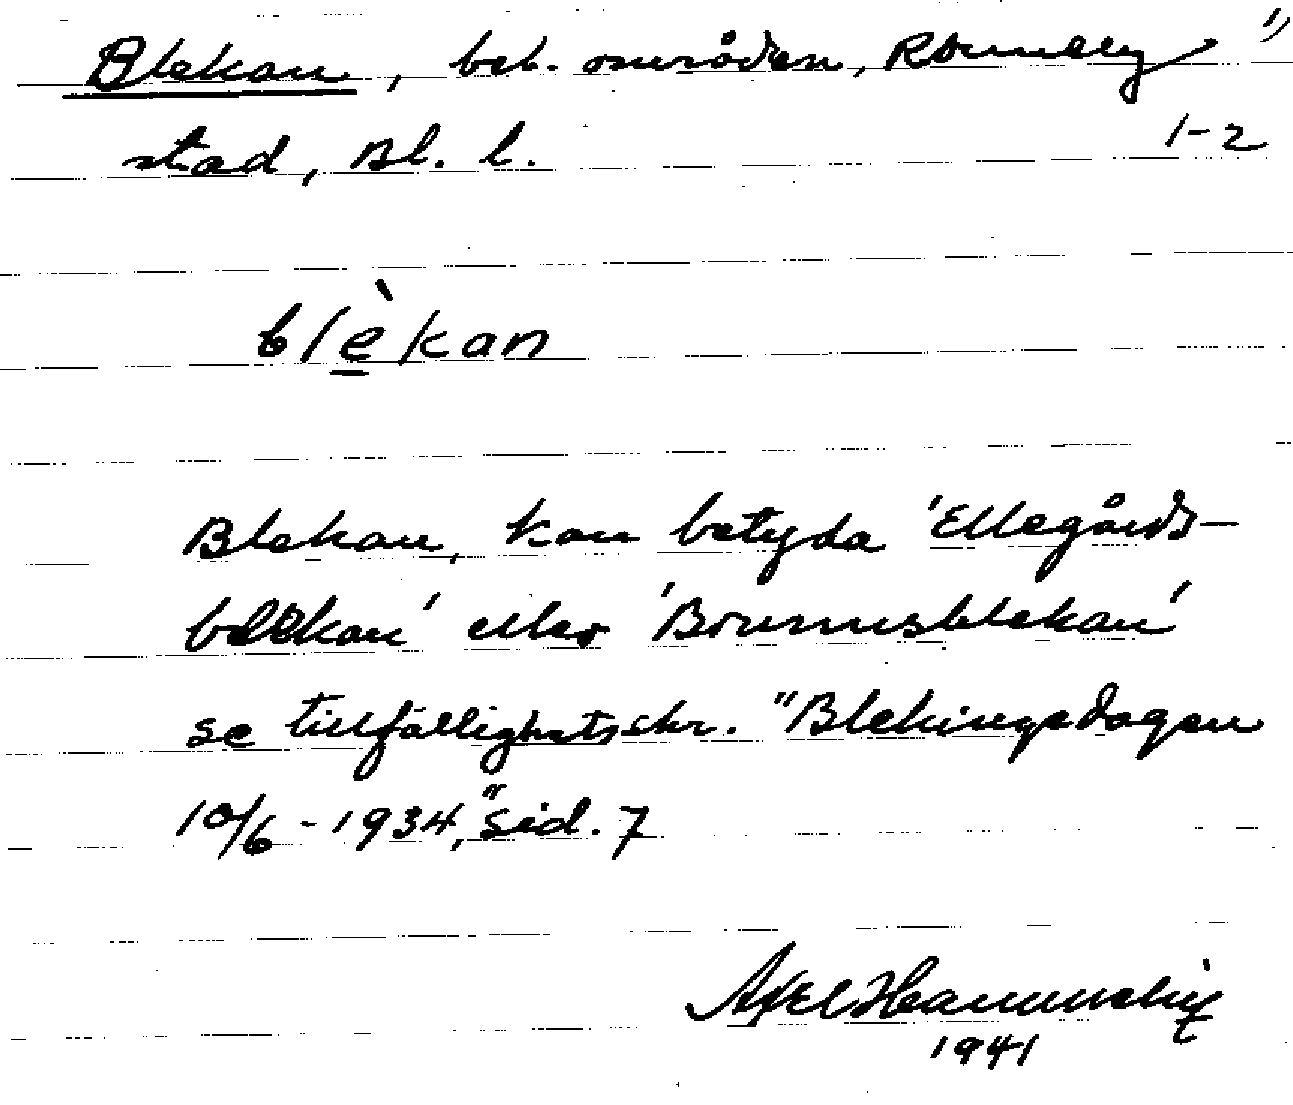 Blekan, beb. områden, Ronneby "
stad, Bl. l. 1-2
blèkan
Blekan, kan betyda 'Ellegårds-
blekan' eller 'Brunnsblekan'
se tillfällighetsskr. "Blekingedagen
10/6 - 1934," sid. 7
Axel
1941